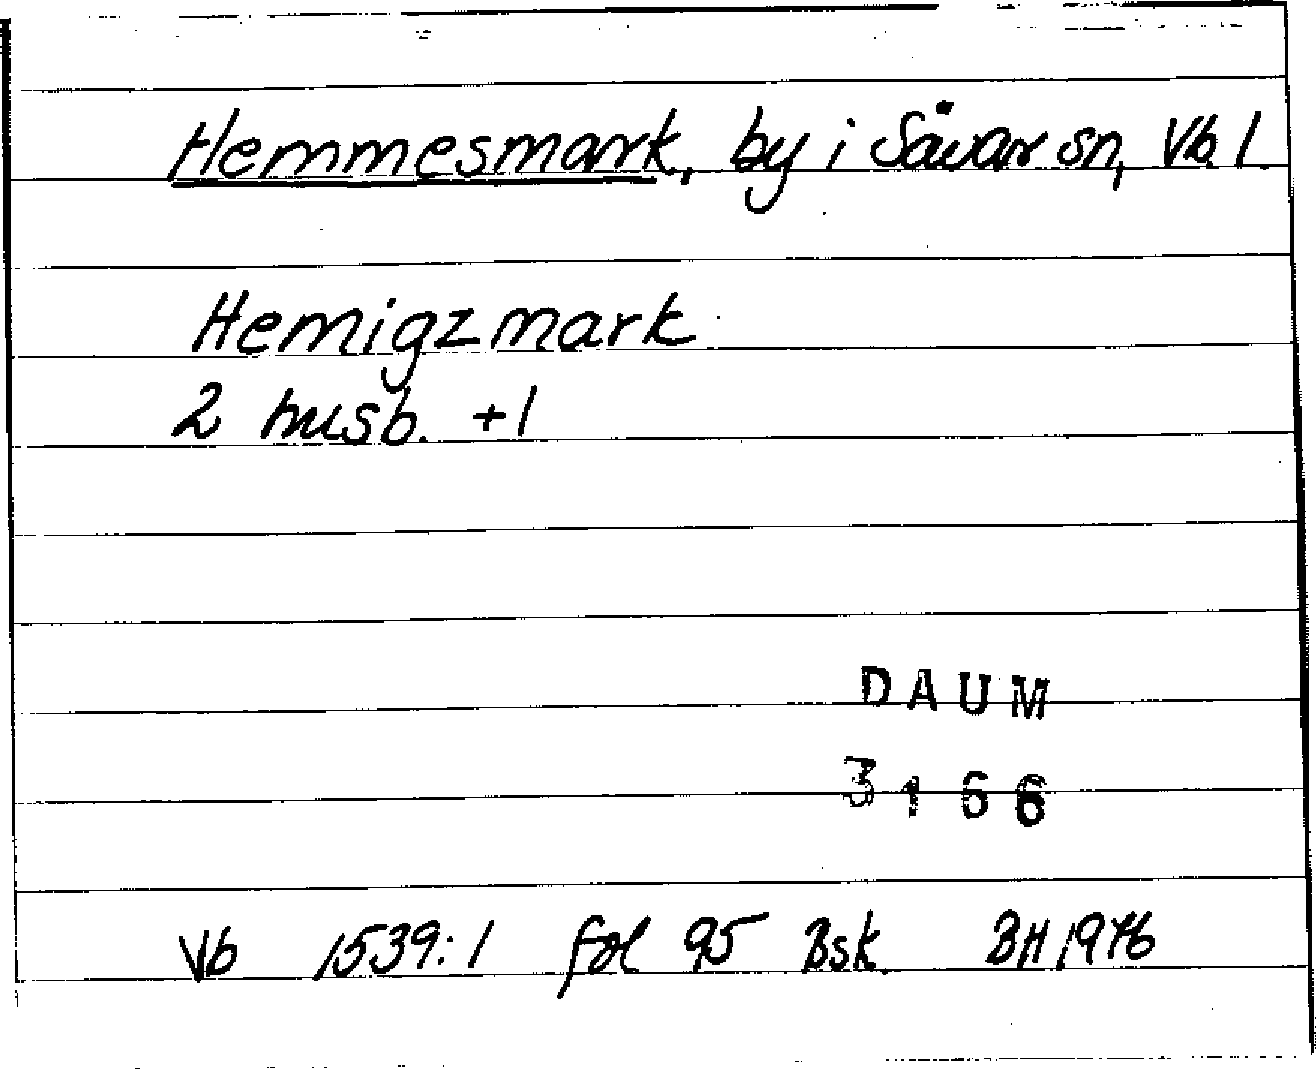 Hemmesmark, by i Sävar sn, Vb. l.
Hemigzmark
2 husb. +1
DAUM
3166
Vb 1539:1 fol 95 Bsk. BH 1976